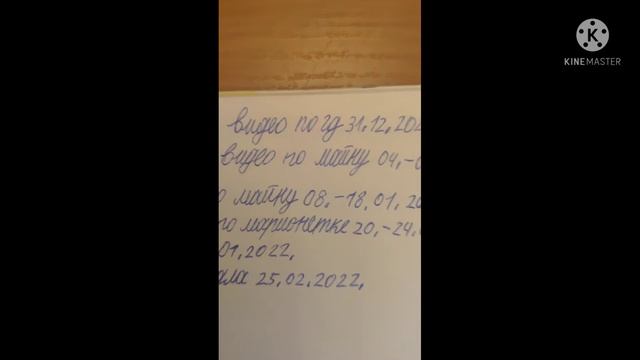 KINEMASTER
видео по гд 31.12.202
видео по майну 04.-0
о майну 08.-18.01.20
го марионетке 20.-24.
01.2022.
ала 25.02.2022.